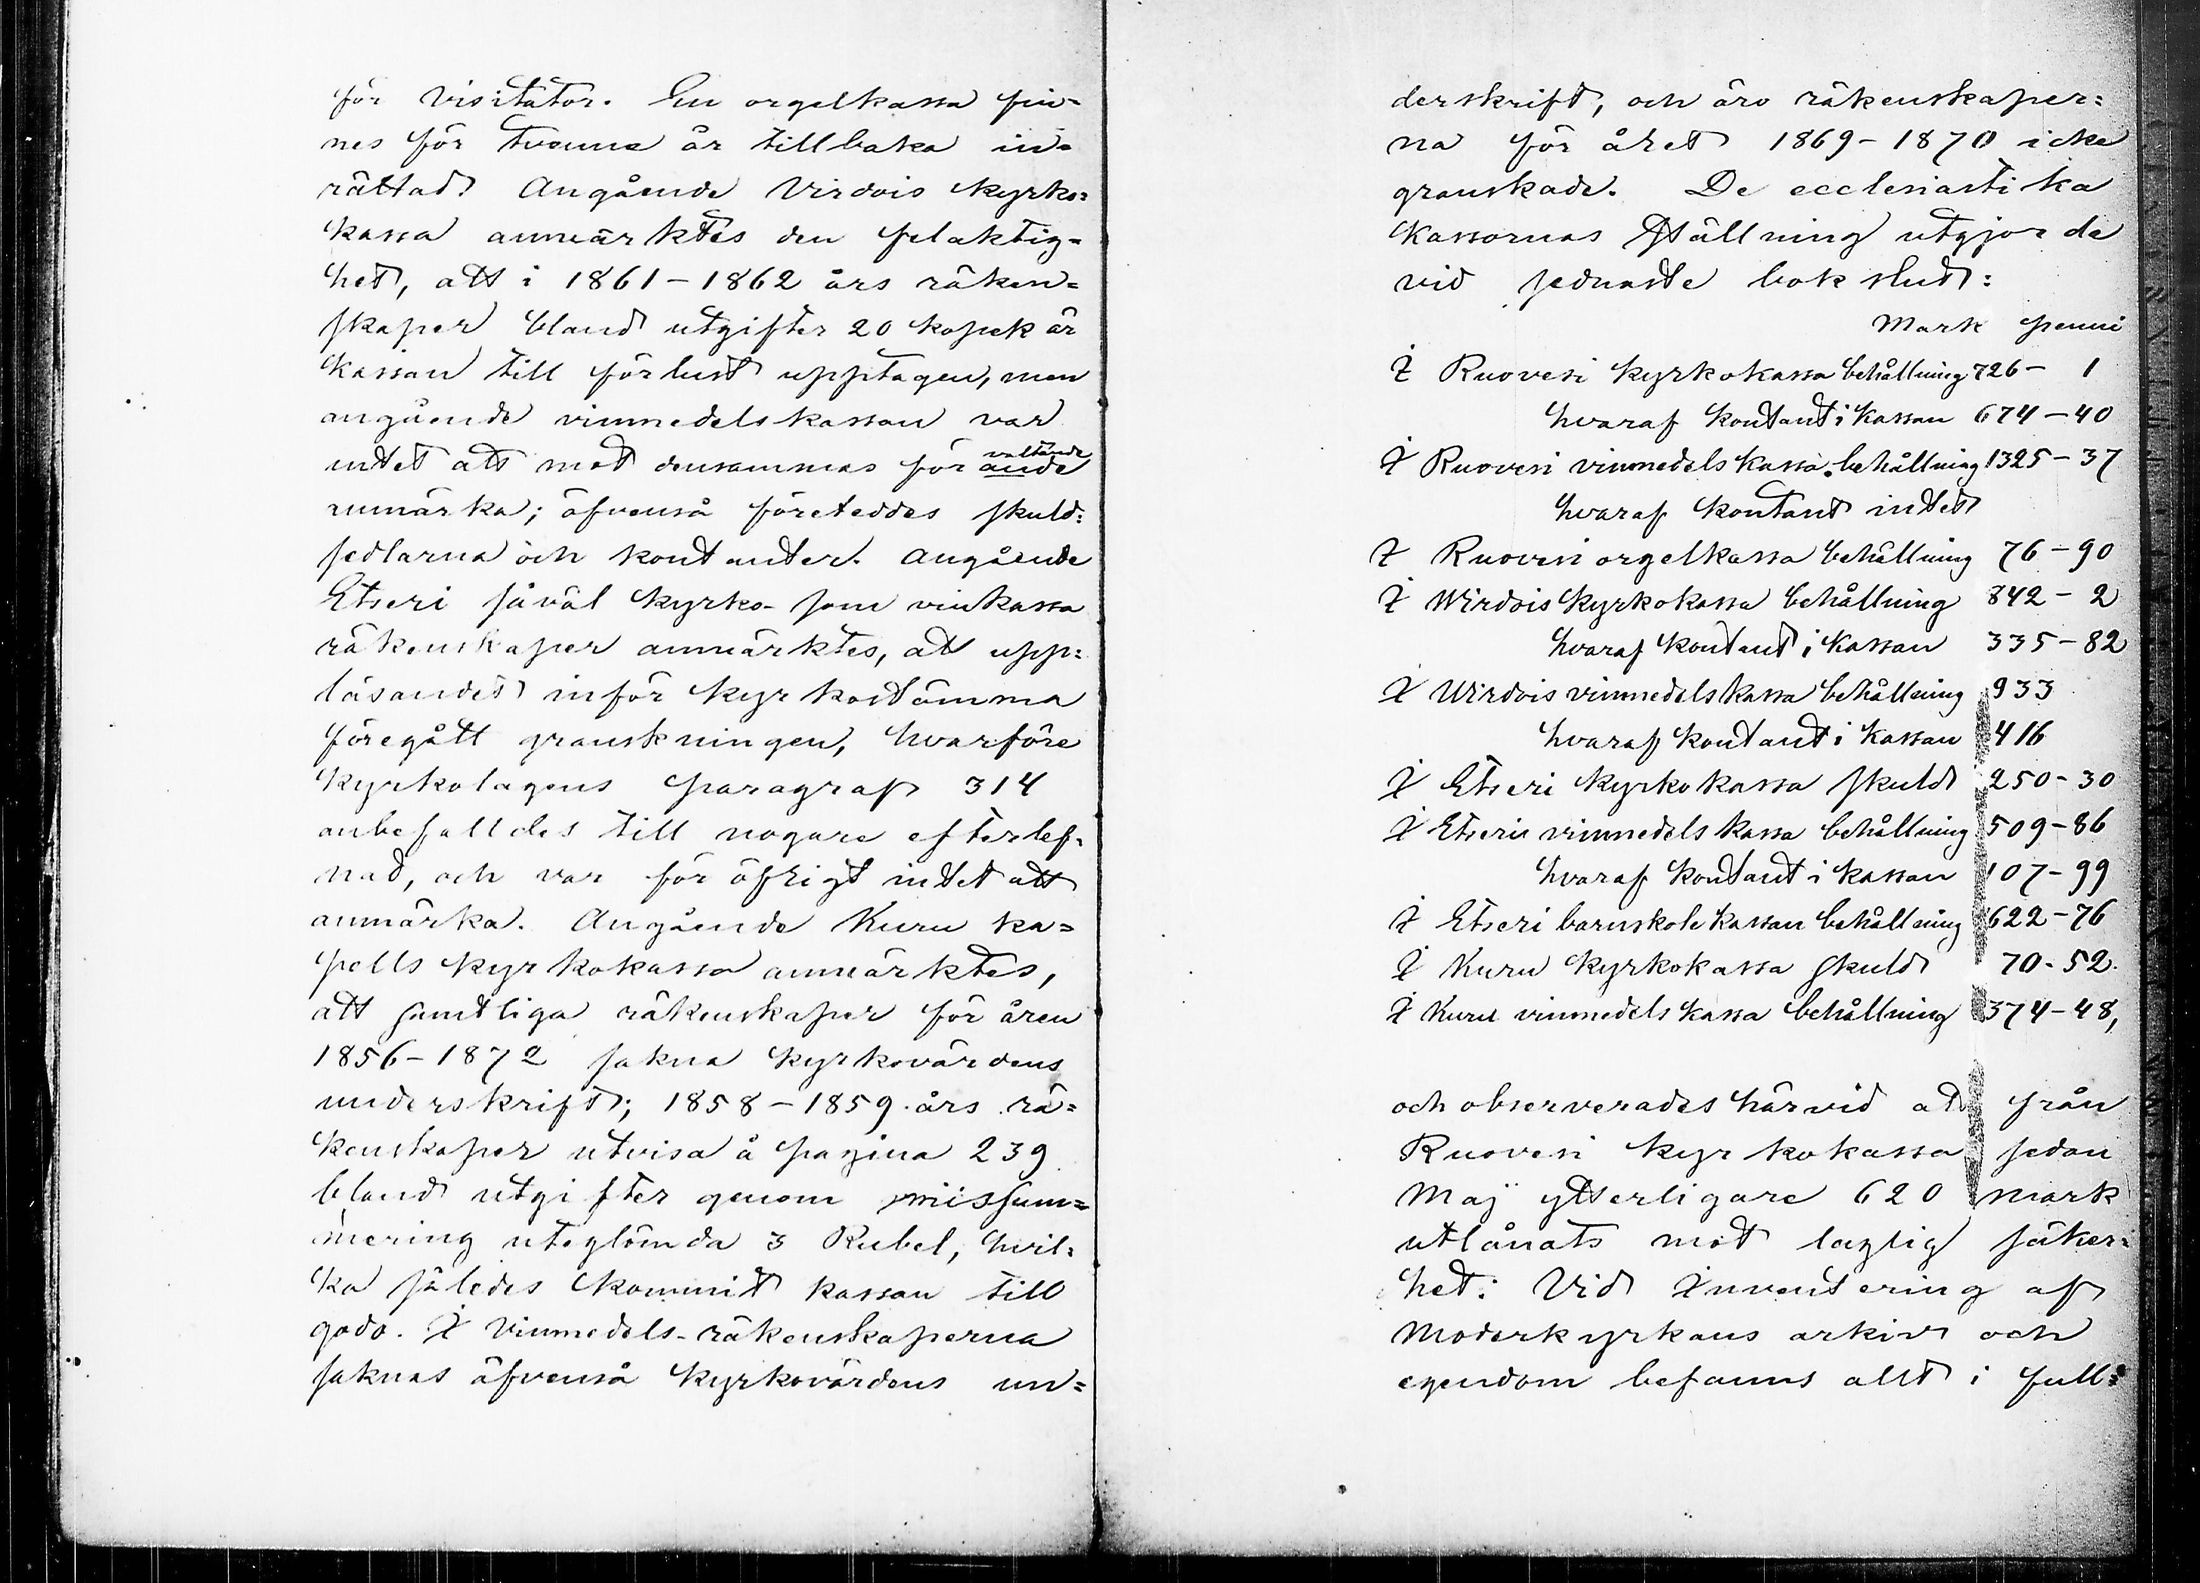 för Visitator. En orgelkassa fin=
nes för tvenne år tillbaka in=
rättad. Angående Virdois kyrko=
kassa anmärktes den felaktig=
het, att i 1861–1862 års räken=
skaper bland utgifter 20 kopek är
kassan till förlust upptagen, men
angående vinmedelskassan var
intet att mot densammas för valtande ande
anmärka; äfvenså företeddes skuld=
sedlarna och kontanter. Angående
Etseri såväl kyrko- som vinkassa
räkenskaper anmärktes, att upp=
läsandet inför kyrkostämma
föregått granskningen, hvarföre
kyrkolagens paragraf 314
anbefalldes till nogare efterlef=
nad, och var för öfrigt intet att
anmärka. Angående Kuru ka=
pells kyrkokassa anmärktes,
att samtliga räkenskaper för åren
1856–1872 sakna kyrkovärdens
underskrift; 1858–1859 års rä=
kenskaper utvisa å pagina 239
bland utgifter genom missum=
mering uteglömda 3 Rubel, hvil=
ka således kommit kassan till
godo. I Vinmedels-räkenskaperna
saknas äfvenså kyrkovärdens un=
derskrift, och äro räkenskaper=
na för året 1869–1870 icke
granskade. De ecclesiastika
kassornas ställning utgjorde
vid sednaste bokslut:
Mark penni
I Ruovesi kyrkokassa behållning 726 – 1
hvaraf kontant i kassan 674 – 40
I Ruovesi vinmedels kassa behållning 1325 – 37
hvaraf kontant intet
I Ruovesi orgelkassa behållning 76 – 90
I Wirdois kyrkokassa behållning 842 – 2
hvaraf kontant i kassan 335 – 82
I Wirdois vinmedels kassa behållning 933
hvaraf kontant i kassan 416
I Etseri kyrkokassa skuld 250 – 30
I Etseri vinmedels kassa behållning 509 – 86
hvaraf kontant i kassan 107 – 99
I Etseri barnskole kassan behållning 622 – 76
I Kuru kyrkokassa skuld 70 - 52.
I Kuru vinmedels kassa behållning 374 – 48,
och observerades härvid att från
Ruovesi kyrkokassa sedan
Maj ytterligare 620 mark
utlånats mot laglig säker=
het. Vid Inventering af
Moderkyrkans arkiv och
egendom befanns allt i full=